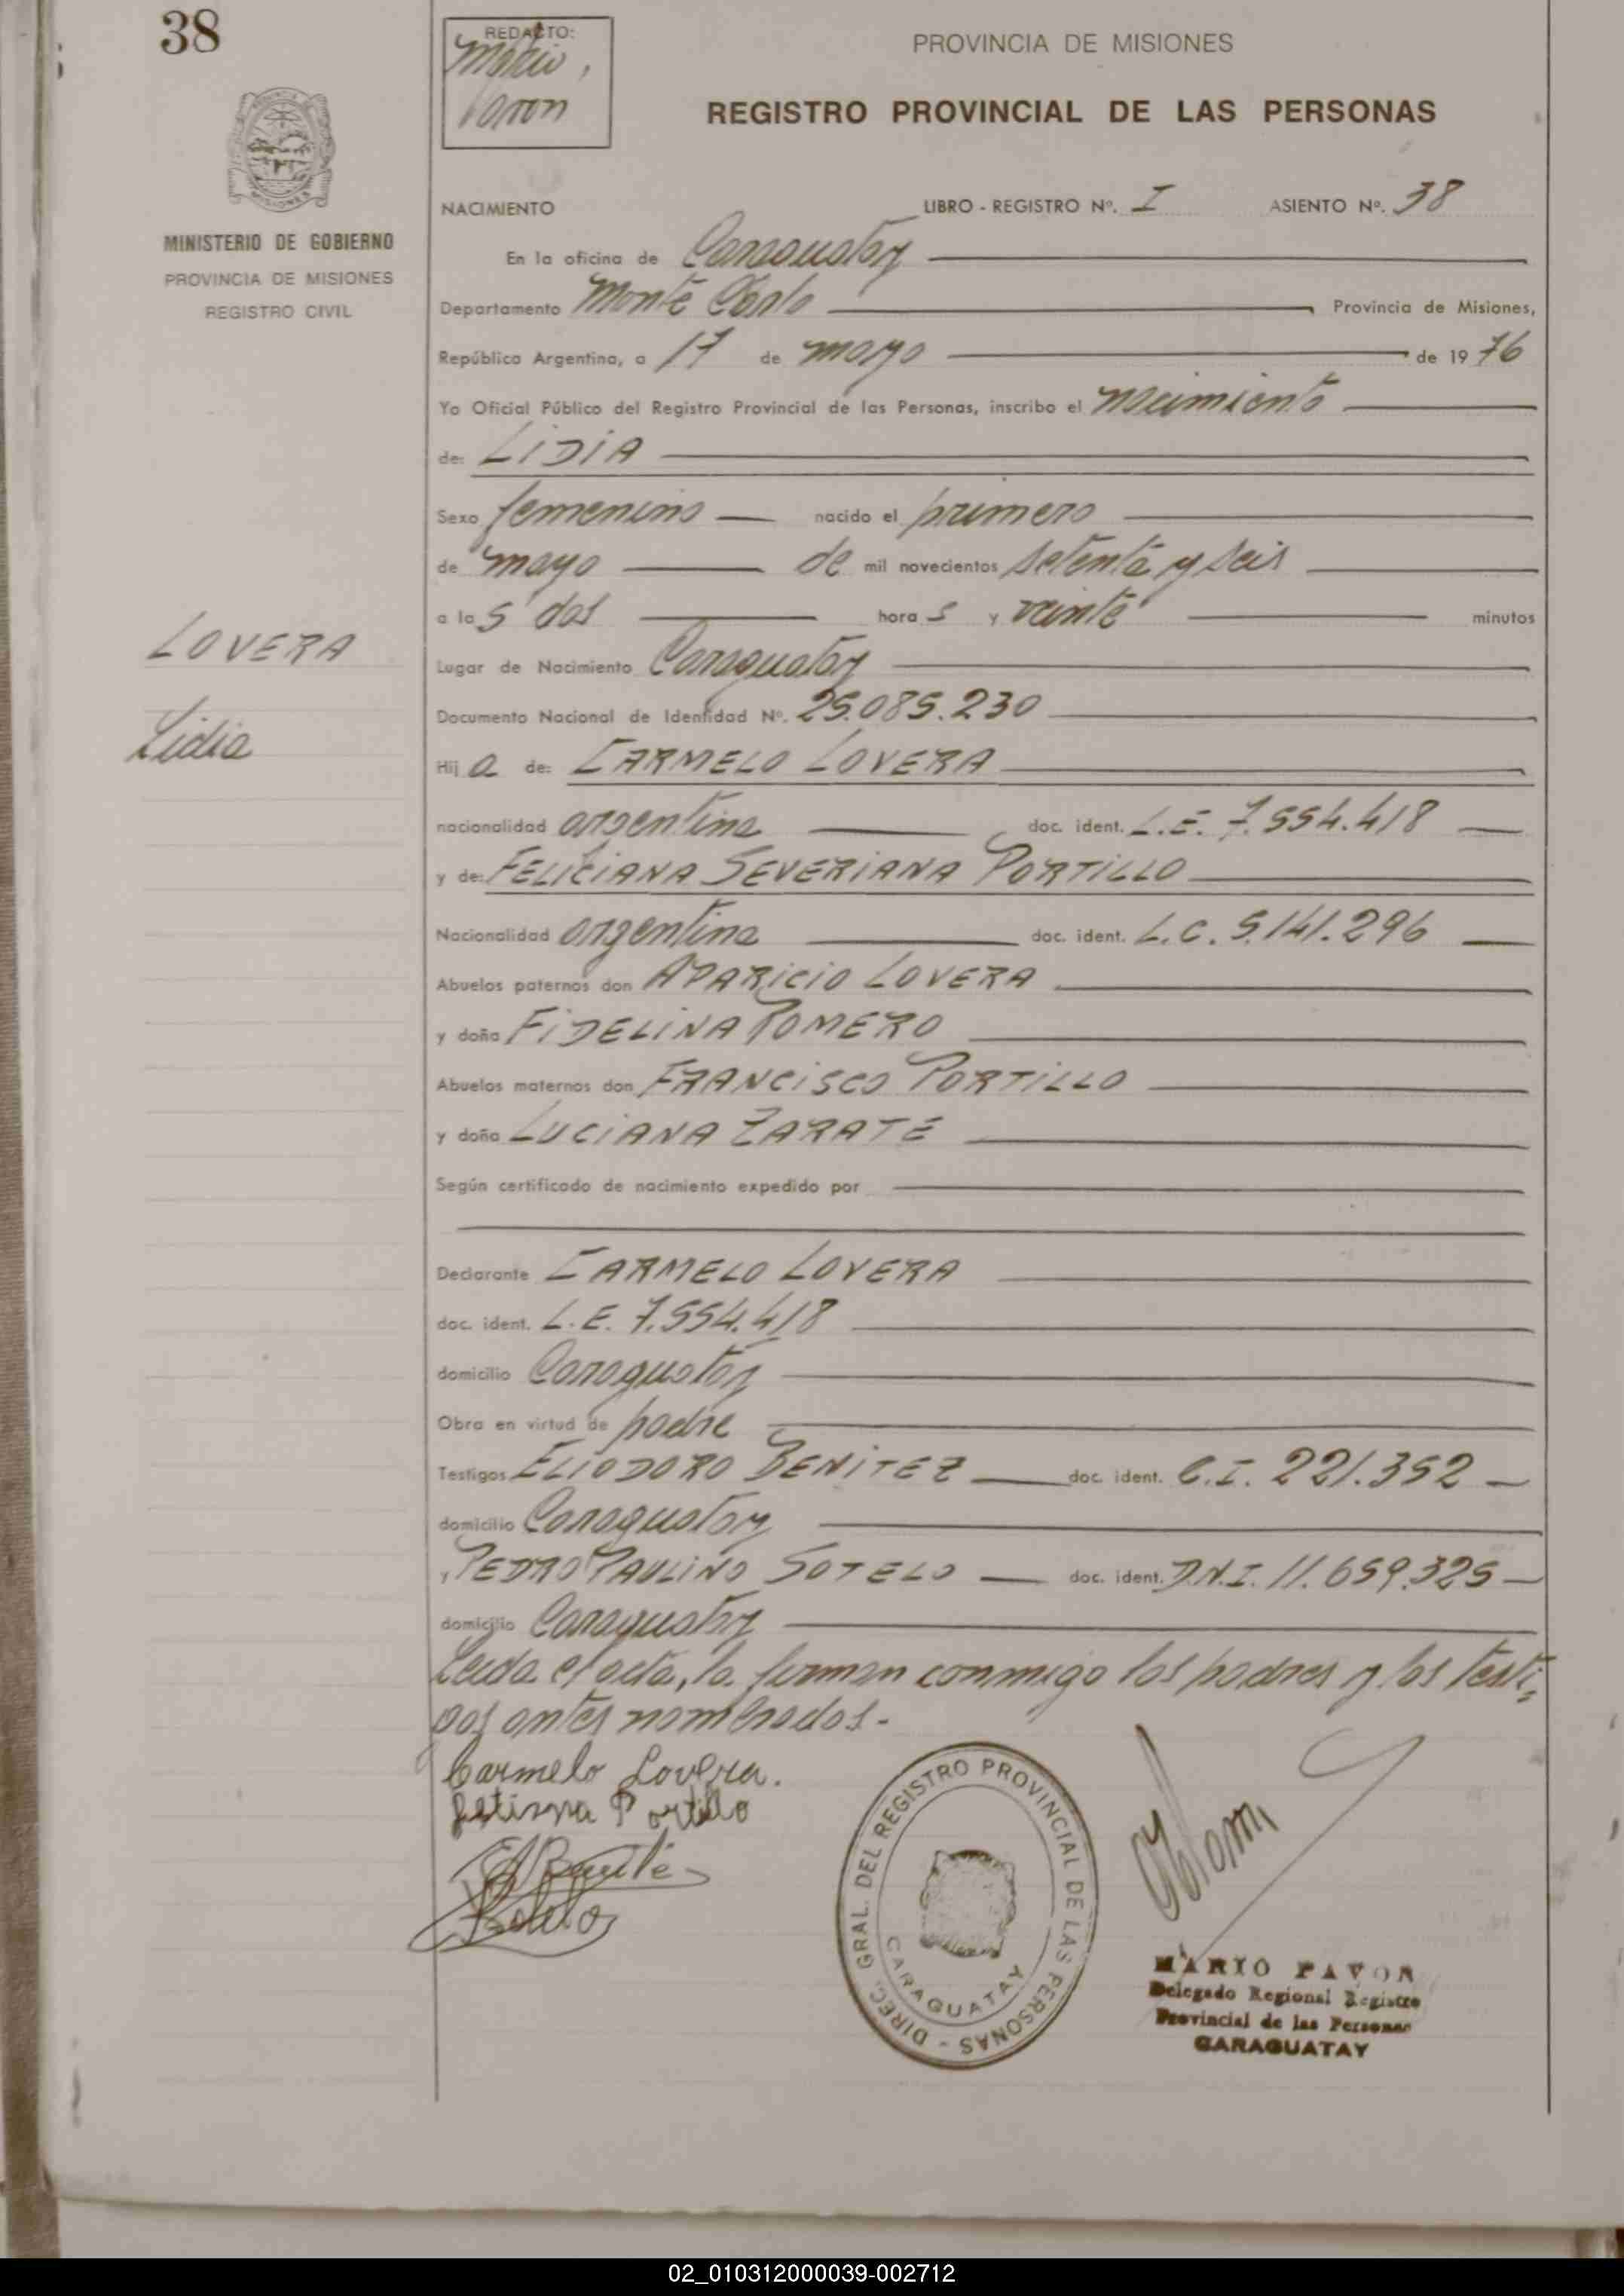 38
REDACTO:
Mario
Pavon
PROVINCIA DE MISIONES
REGISTRO PROVINCIAL DE LAS PERSONAS
MINISTERIO DE GOBIERNO
PROVINCIA DE MISIONES
REGISTRO CIVIL
NACIMIENTO LIBRO - REGISTRO Nº. I ASIENTO Nº. 38
En la oficina de Caraguatay
Departamento Monte Carlo Provincia de Misiones,
República Argentina, a 17 de mayo de 1976
Yo Oficial Público del Registro Provincial de las Personas, inscribo el nacimiento
de: LIDIA
Sexo femenino nacido el primero
de mayo de mil novecientos setenta y seis
a las dos horas y veinte minutos
LOVERA
Lidia
Lugar de Nacimiento Caraguatay
Documento Nacional de Identidad Nº. 25.085.230
Hija de: CARMELO LOVERA
nacionalidad argentina doc. ident. L.E. 7.554.418
y de: FELICIANA SEVERIANA PORTILLO
Nacionalidad argentina doc. ident. L.C. 5.141.296
Abuelos paternos don APARICIO LOVERA
y doña FIDELINA ROMERO
Abuelos maternos don FRANCISCO PORTILLO
y doña LUCIANA ZARATE
Según certificado de nacimiento expedido por
Declarante CARMELO LOVERA
doc. ident. L.E. 7.554.418
domicilio Caraguatay
Obra en virtud de padre
Testigos ELIODORO BENITEZ doc. ident. C.I. 221.352
domicilio Caraguatay
y PEDRO PAULINO SOTELO doc. ident. D.N.I. 11.659.325
domicilio Caraguatay
Leida el acta, la firman conmigo los padres y los testi-
gos antes nombrados.-
Carmelo Lovera.
Portillo
DIREC. GRAL. DEL REGISTRO PROVINCIAL DE LAS PERSONAS -
CARAGUATAY
MARIO PAVON
Delegado Regional Registro
Provincial de las Personas
CARAGUATAY
02_010312000039-002712